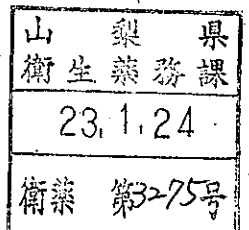 山梨県
衛生薬務課
23.1.24
衛薬 第3275号